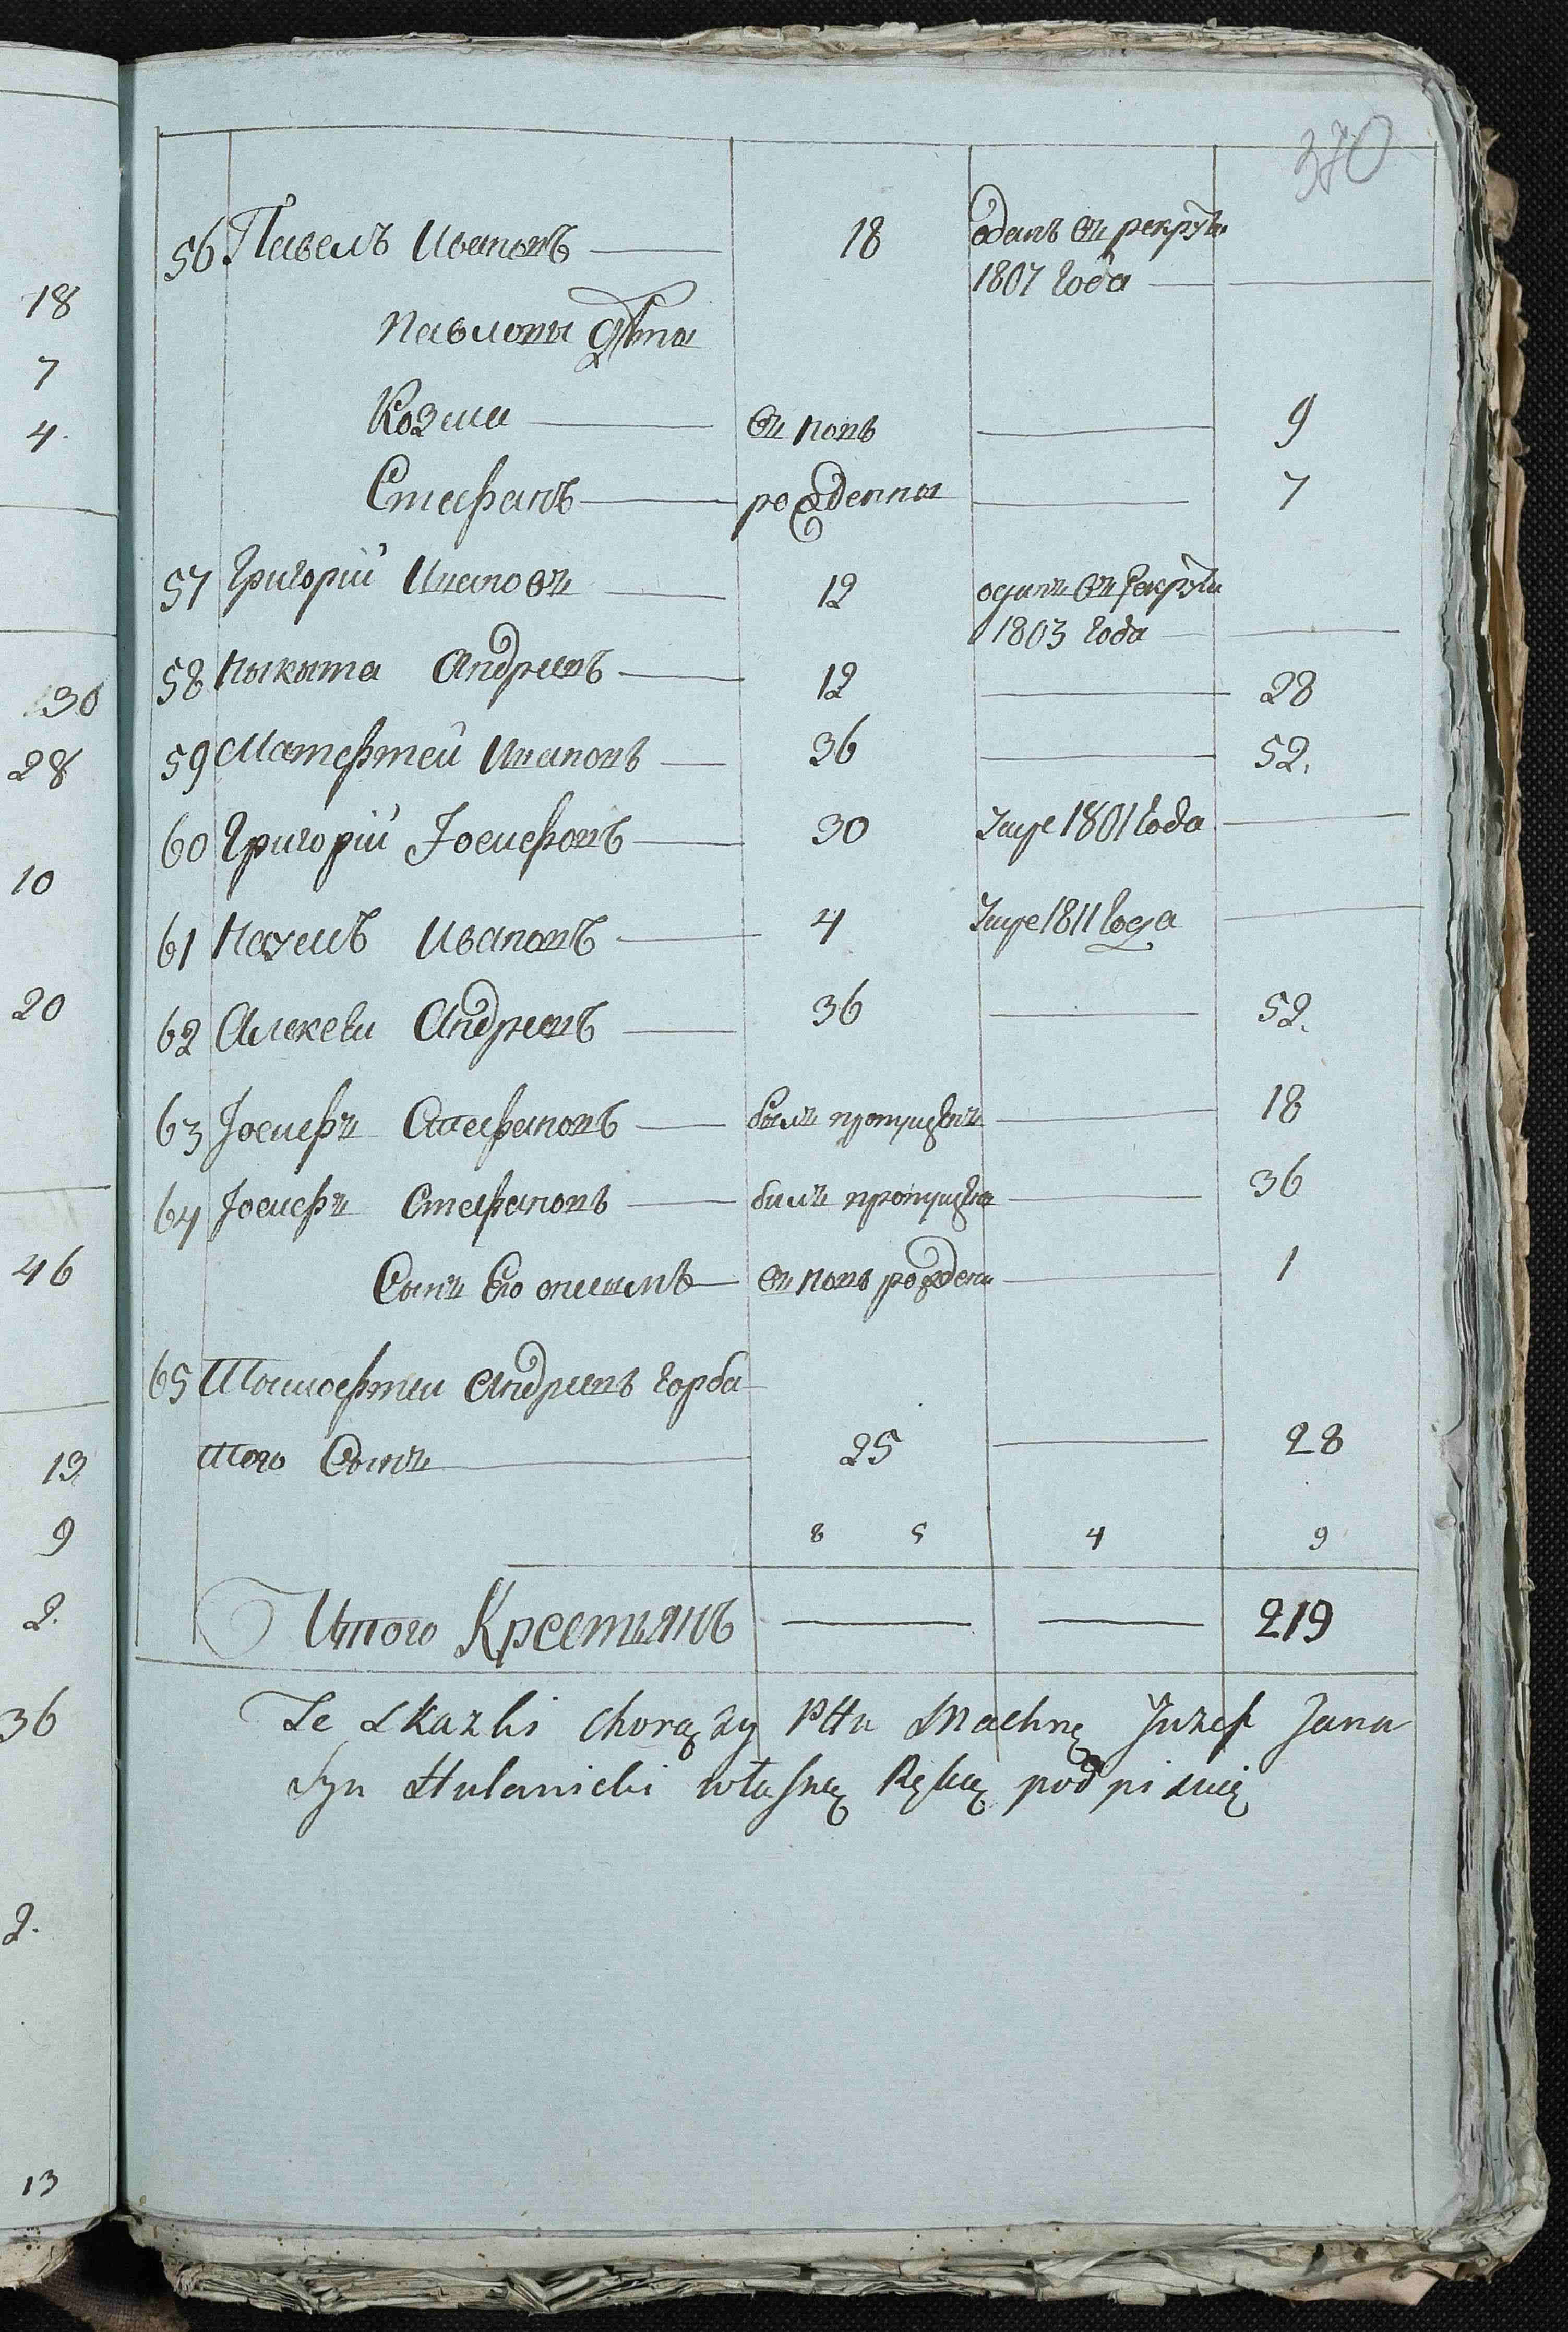 370
56 Павелъ Ивановъ 18 оданъ въ рекруты
1807 года
Павловы дѣти
Козма въ новъ 9
Стефанъ рожденны 7
57 Григорій Ивановъ 12 оданъ въ рекруты
1803 года
58 Никита Андреевъ 12 28
59 Матефтей Ивановъ 36 52.
60 Григорій Іосифовъ 30 Умре 1801 года
61 Ивановъ 4 Умре 1811 года
62 Алексѣи Андреевъ 36 52.
63 Іосифъ Стефановъ былъ пропущенъ 18
64 Іосифъ Стефановъ билъ пропущенъ 36
Сынъ Его въ новъ рожден 1
65 Тимофтеи Андреевъ Горба
того Сынъ 25 28
8 5 4 9
Итого Крестьянъ 219
Te Skazki Chorąży Pttu Machnę Juzef Jana
Syn Hulanicki własną Ręką podpisuię
18
7
4.
30
28
10
20
46
19
9
2.
36
2.
13